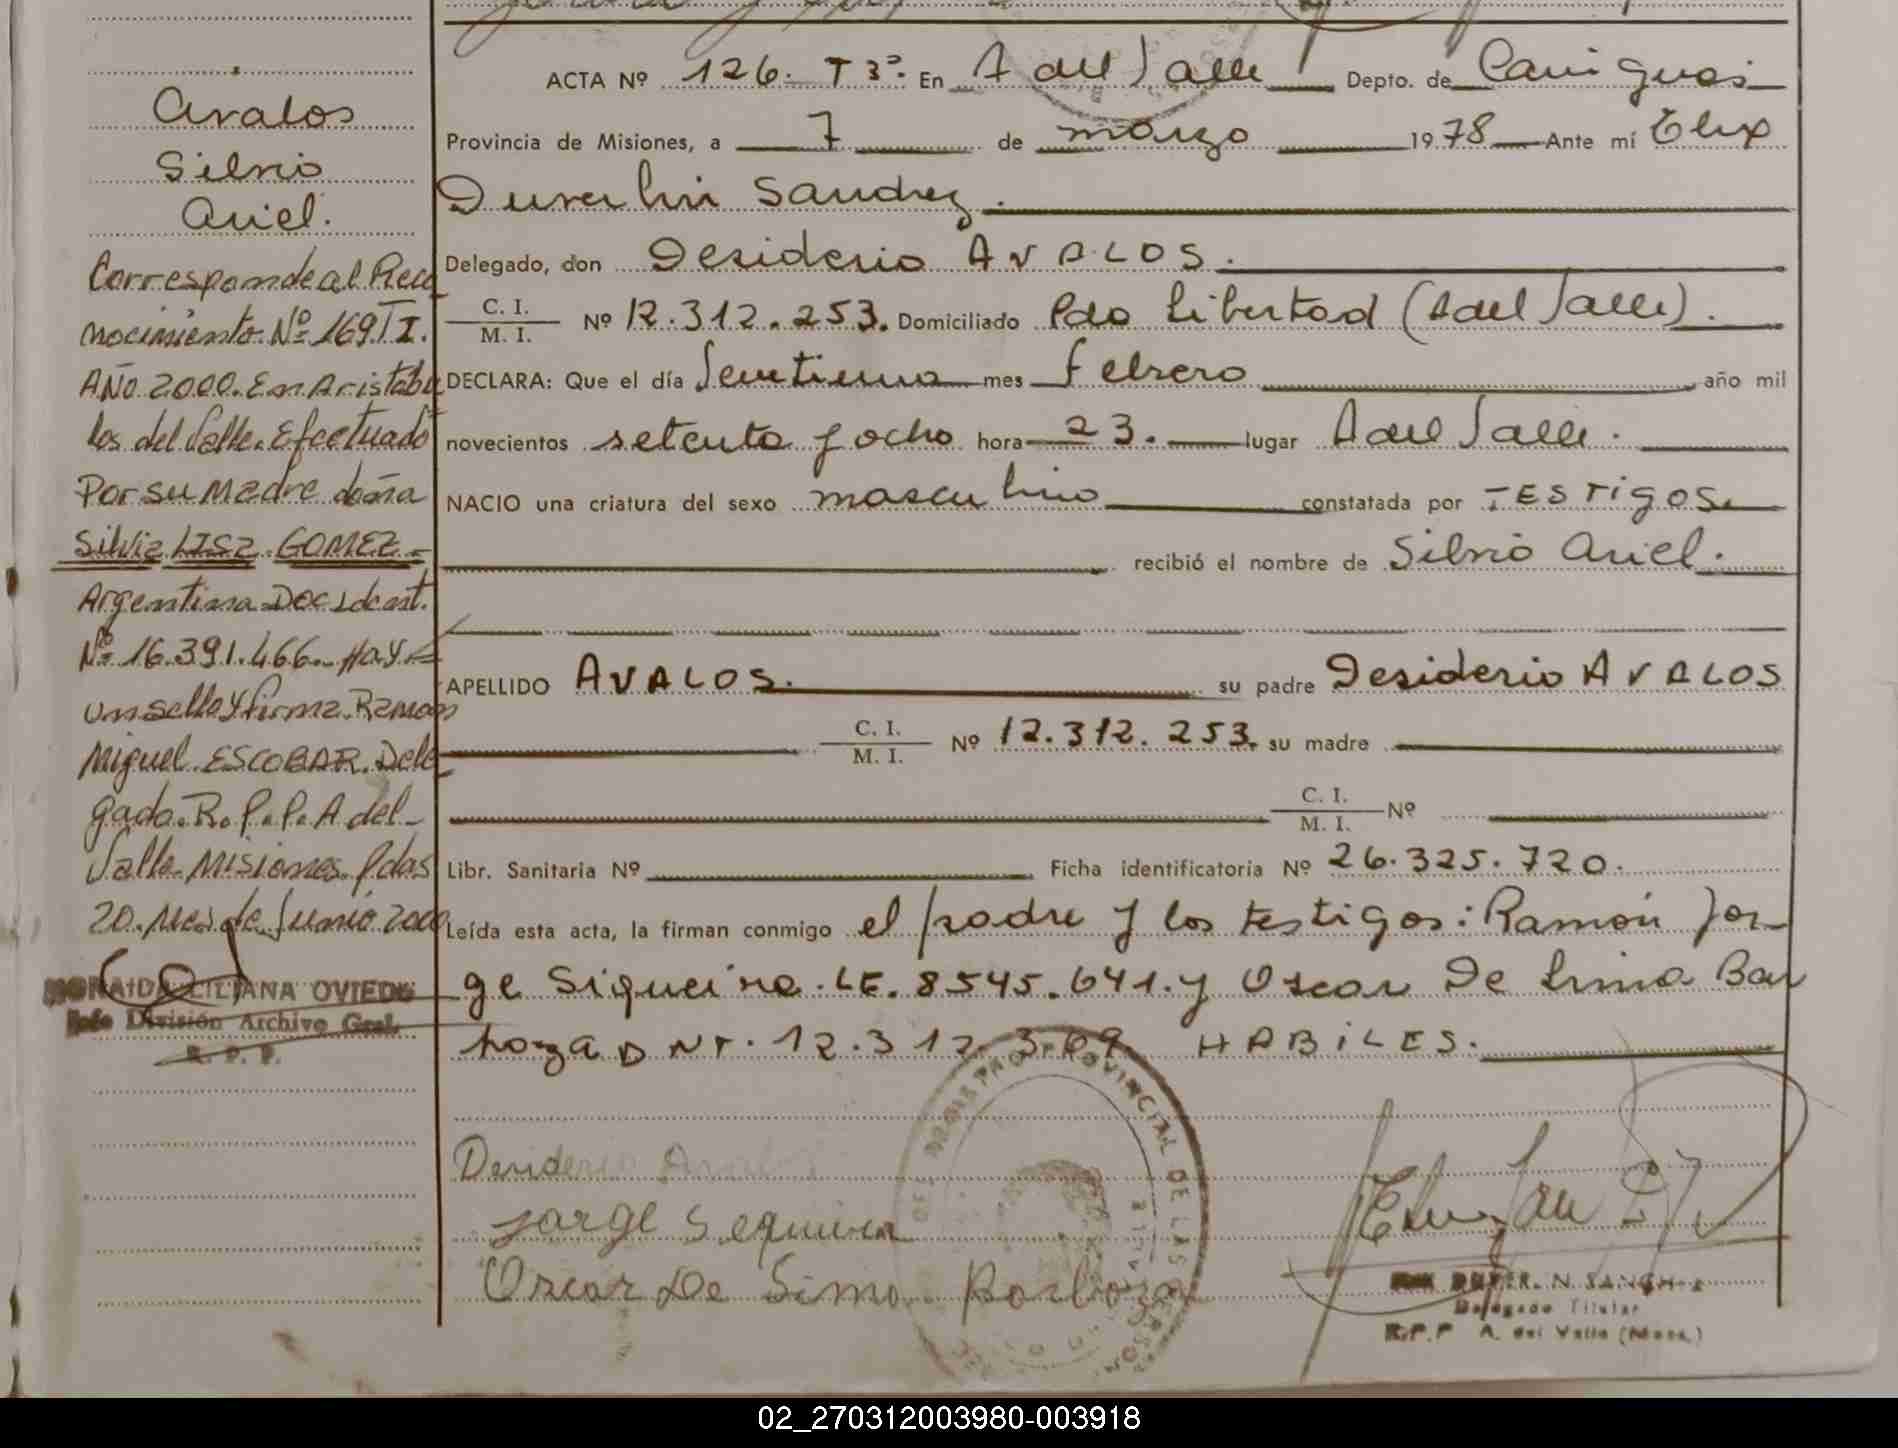 ACTA Nº 126. T3º. En A del Valle Depto. de Cainguas
Provincia de Misiones, a 7 de marzo 1978 Ante mí Elix
Duverlin Sanchez.
Delegado, don Desiderio AVALOS.
C. I.
M. I.
Nº 12.312.253. Domiciliado Pdo Libertad (A del Valle).
DECLARA: Que el día mes Febrero año mil
novecientos setenta y ocho hora 23. lugar A del Valle.
NACIO una criatura del sexo masculino constatada por TESTIGOS.
recibió el nombre de Silvio Ariel.
APELLIDO AVALOS. su padre Desiderio AVALOS
C. I.
M. I.
Nº 12.312.253. su madre
C. I.
M. I.
Nº
Libr. Sanitaria Nº Ficha identificatoria Nº 26.325.720.
Leída esta acta, la firman conmigo el padre y los testigos: Ramón Jor
ge Siqueira. LE. 8545.641. y Oscar De Lima Bar
boza DNI. 12.312.369 HABILES.
Desiderio Avalos
Jorge Sequeira
Oscar De Lima Barboza
Delegado Titular
R.P.P A. del Valle (Mnes.)
REGISTRO PROVINCIAL DE LAS PERSONAS
Avalos
Silvio
Ariel.
Corresponde al Reco
nocimiento. Nº 169 TI.
AÑO 2000. En Aristóbu
los del Valle. Efectuado
Por su madre doña
Silvia LISA GOMEZ.=
Argentina Doc Ident.
Nº 16.391.466. Hay
un sello y firma. Ramon
Miguel ESCOBAR. Dele
gado. R. P. P. A del
Valle Misiones. Pdas
20. Mes de Junio 2000
LILIANA OVIEDO
Jefe División Archivo Gral.
R. P. P.
02_270312003980-003918